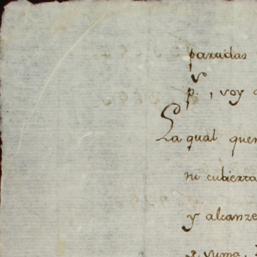 paradas
p. , voy
La qual quen
ni cubierta
y alcanze
suma,